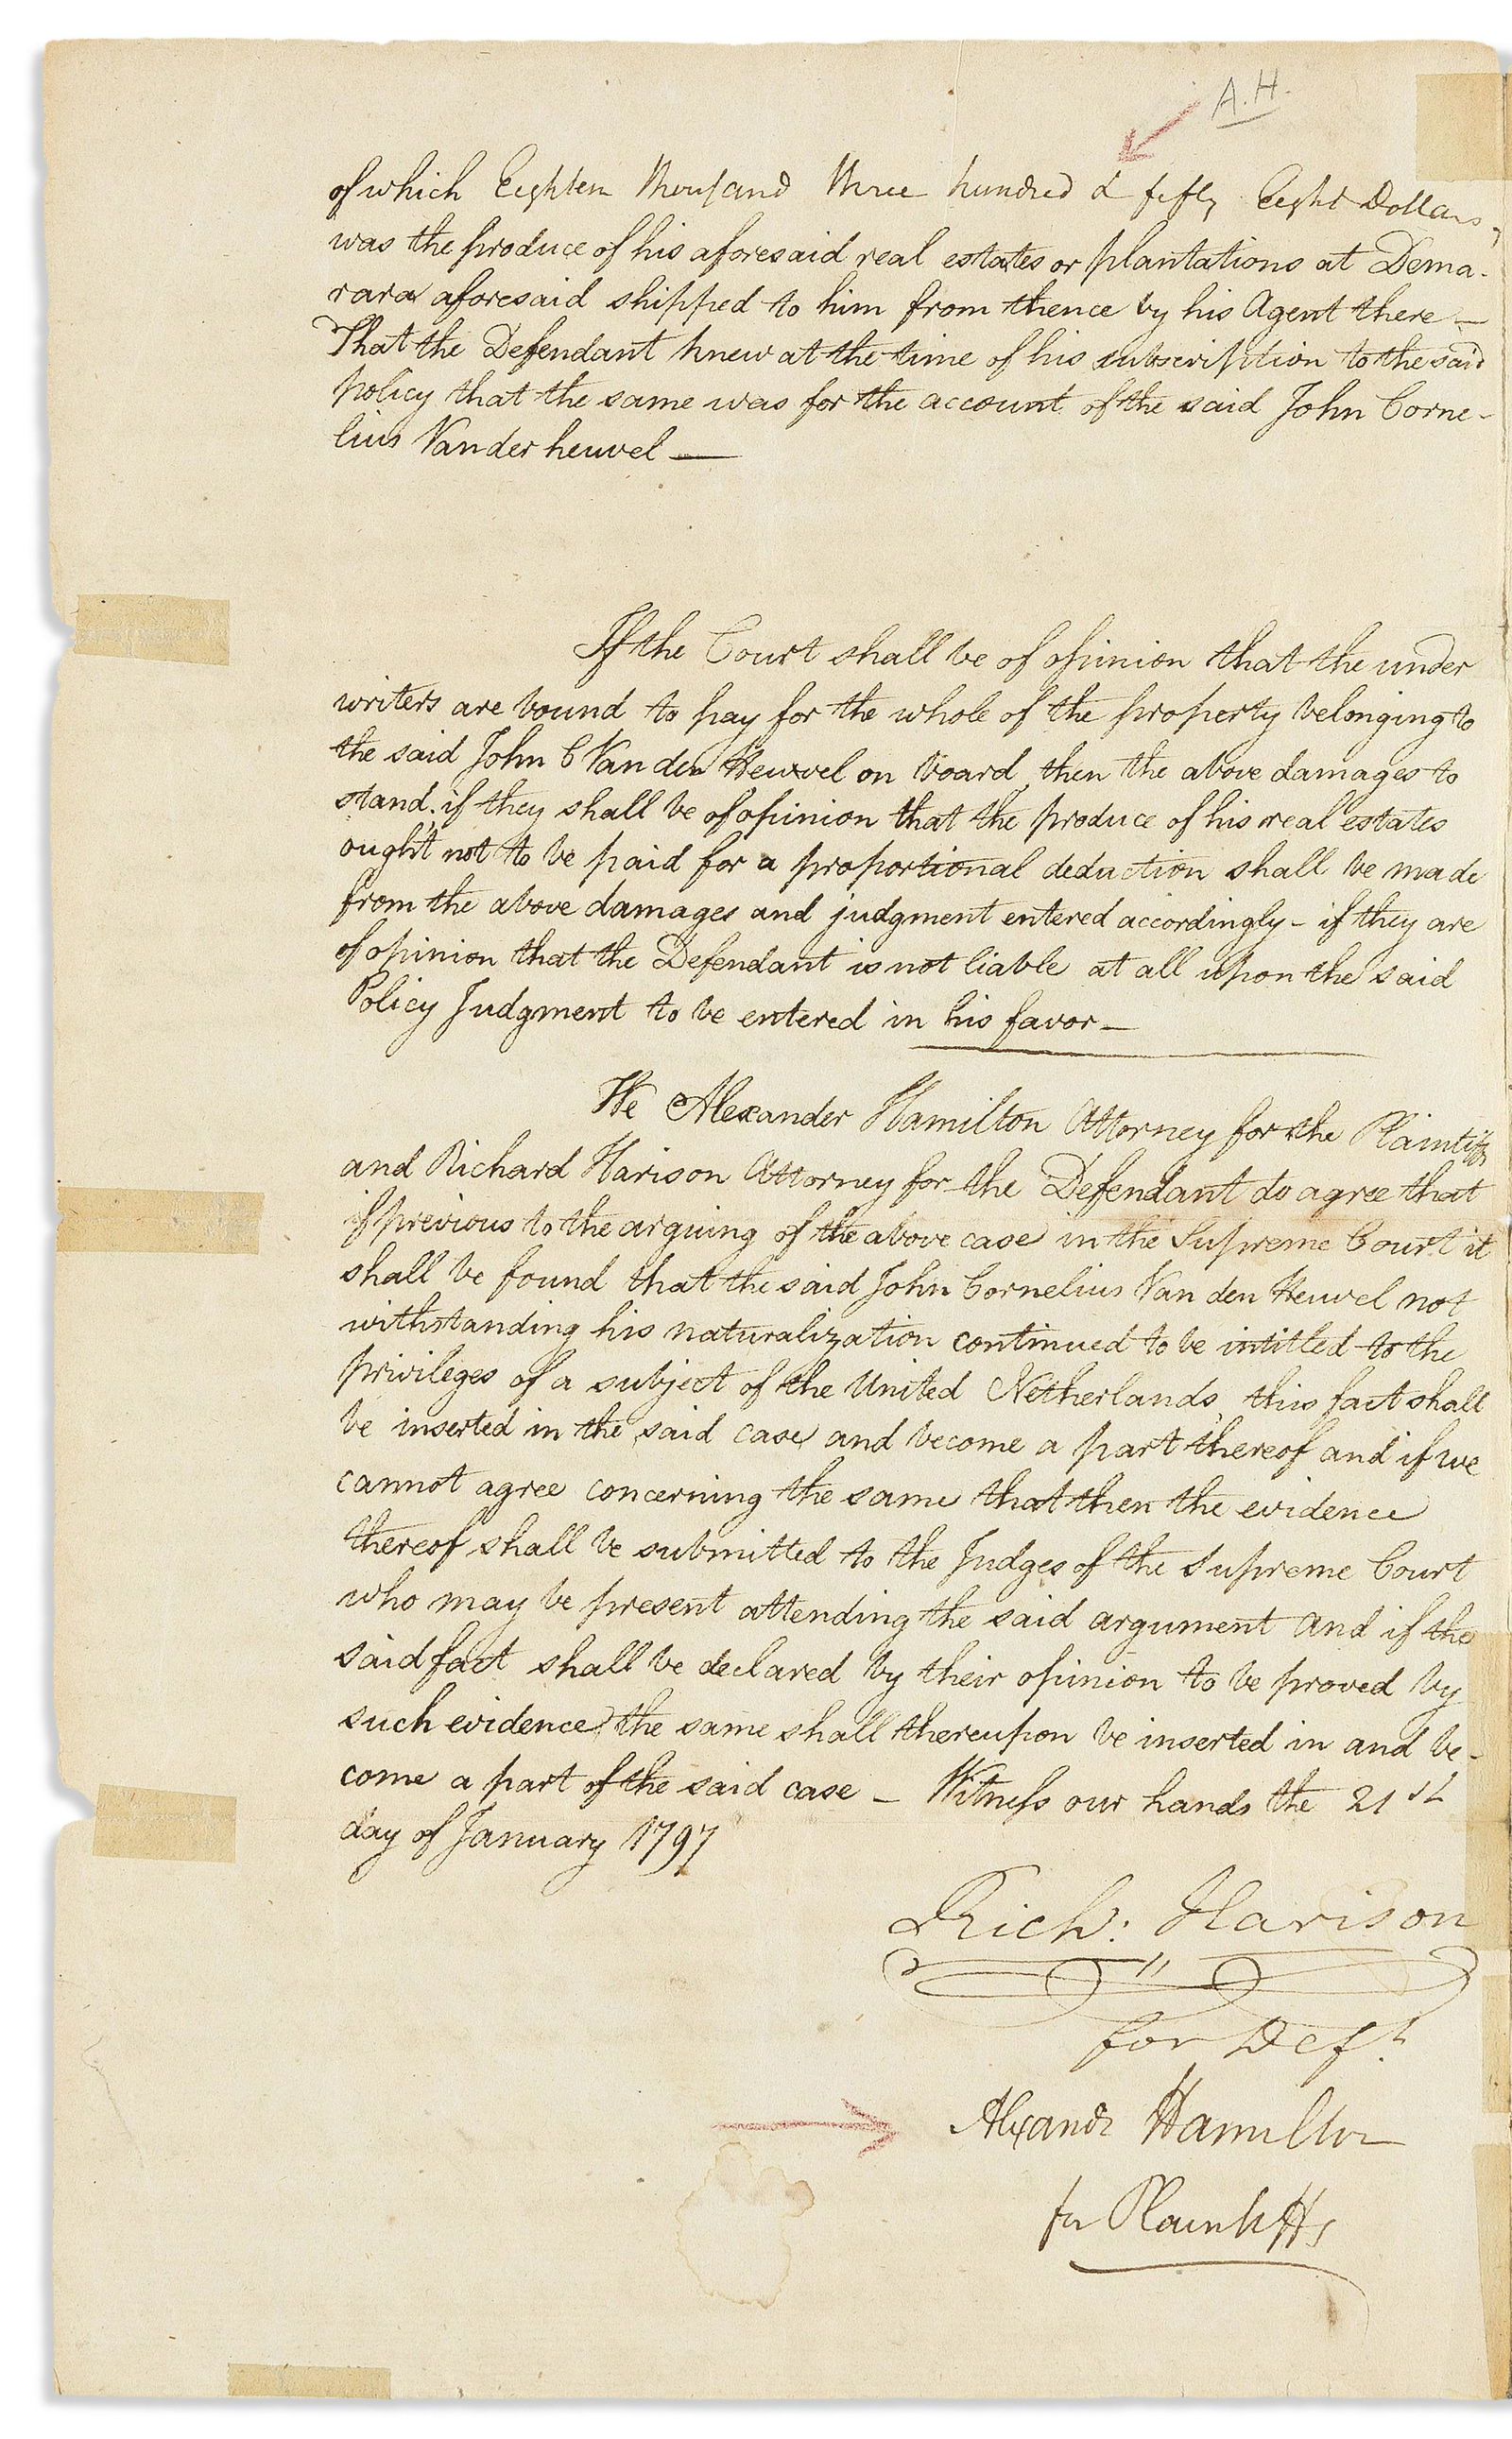 A. H.
of which Eighteen Thousand three hundred & fifty Eight Dollars,
was the produce of his aforesaid real estates or plantations at Dema-
rara aforesaid shipped to him from thence by his Agent there —
That the Defendant knew at the time of his subscription to the said
policy that the same was for the account of the said John Corne-
lius Vander heuvel —
If the Court shall be of opinion that the under
writers are bound to pay for the whole of the property belonging to
the said John C Van den Heuvel on board, then the above damages to
stand. if they shall be of opinion that the produce of his real estates
ought not to be paid for a proportional deduction shall be made
from the above damages and judgment entered accordingly - if they are
of opinion that the Defendant is not liable at all upon the said
Policy Judgment to be entered in his favor —
We Alexander Hamilton Attorney for the Plaintiffs
and Richard Harison Attorney for the Defendant do agree that
if previous to the arguing of the above case in the Supreme Court it
shall be found that the said John Cornelius Van den Heuvel not
withstanding his naturalization continued to be intitled to the
privileges of a subject of the United Netherlands, this fact shall
be inserted in the said case and become a part thereof and if we
cannot agree concerning the same that then the evidence
thereof shall be submitted to the Judges of the Supreme Court
who may be present attending the said argument and if the
said fact shall be declared by their opinion to be proved by
such evidence, the same shall thereupon be inserted in and be-
come a part of the said case — Witness our hands the 21st
day of January 1797
Rich: Harison
for Deft.
Alexandr Hamilton
for Plaintiffs